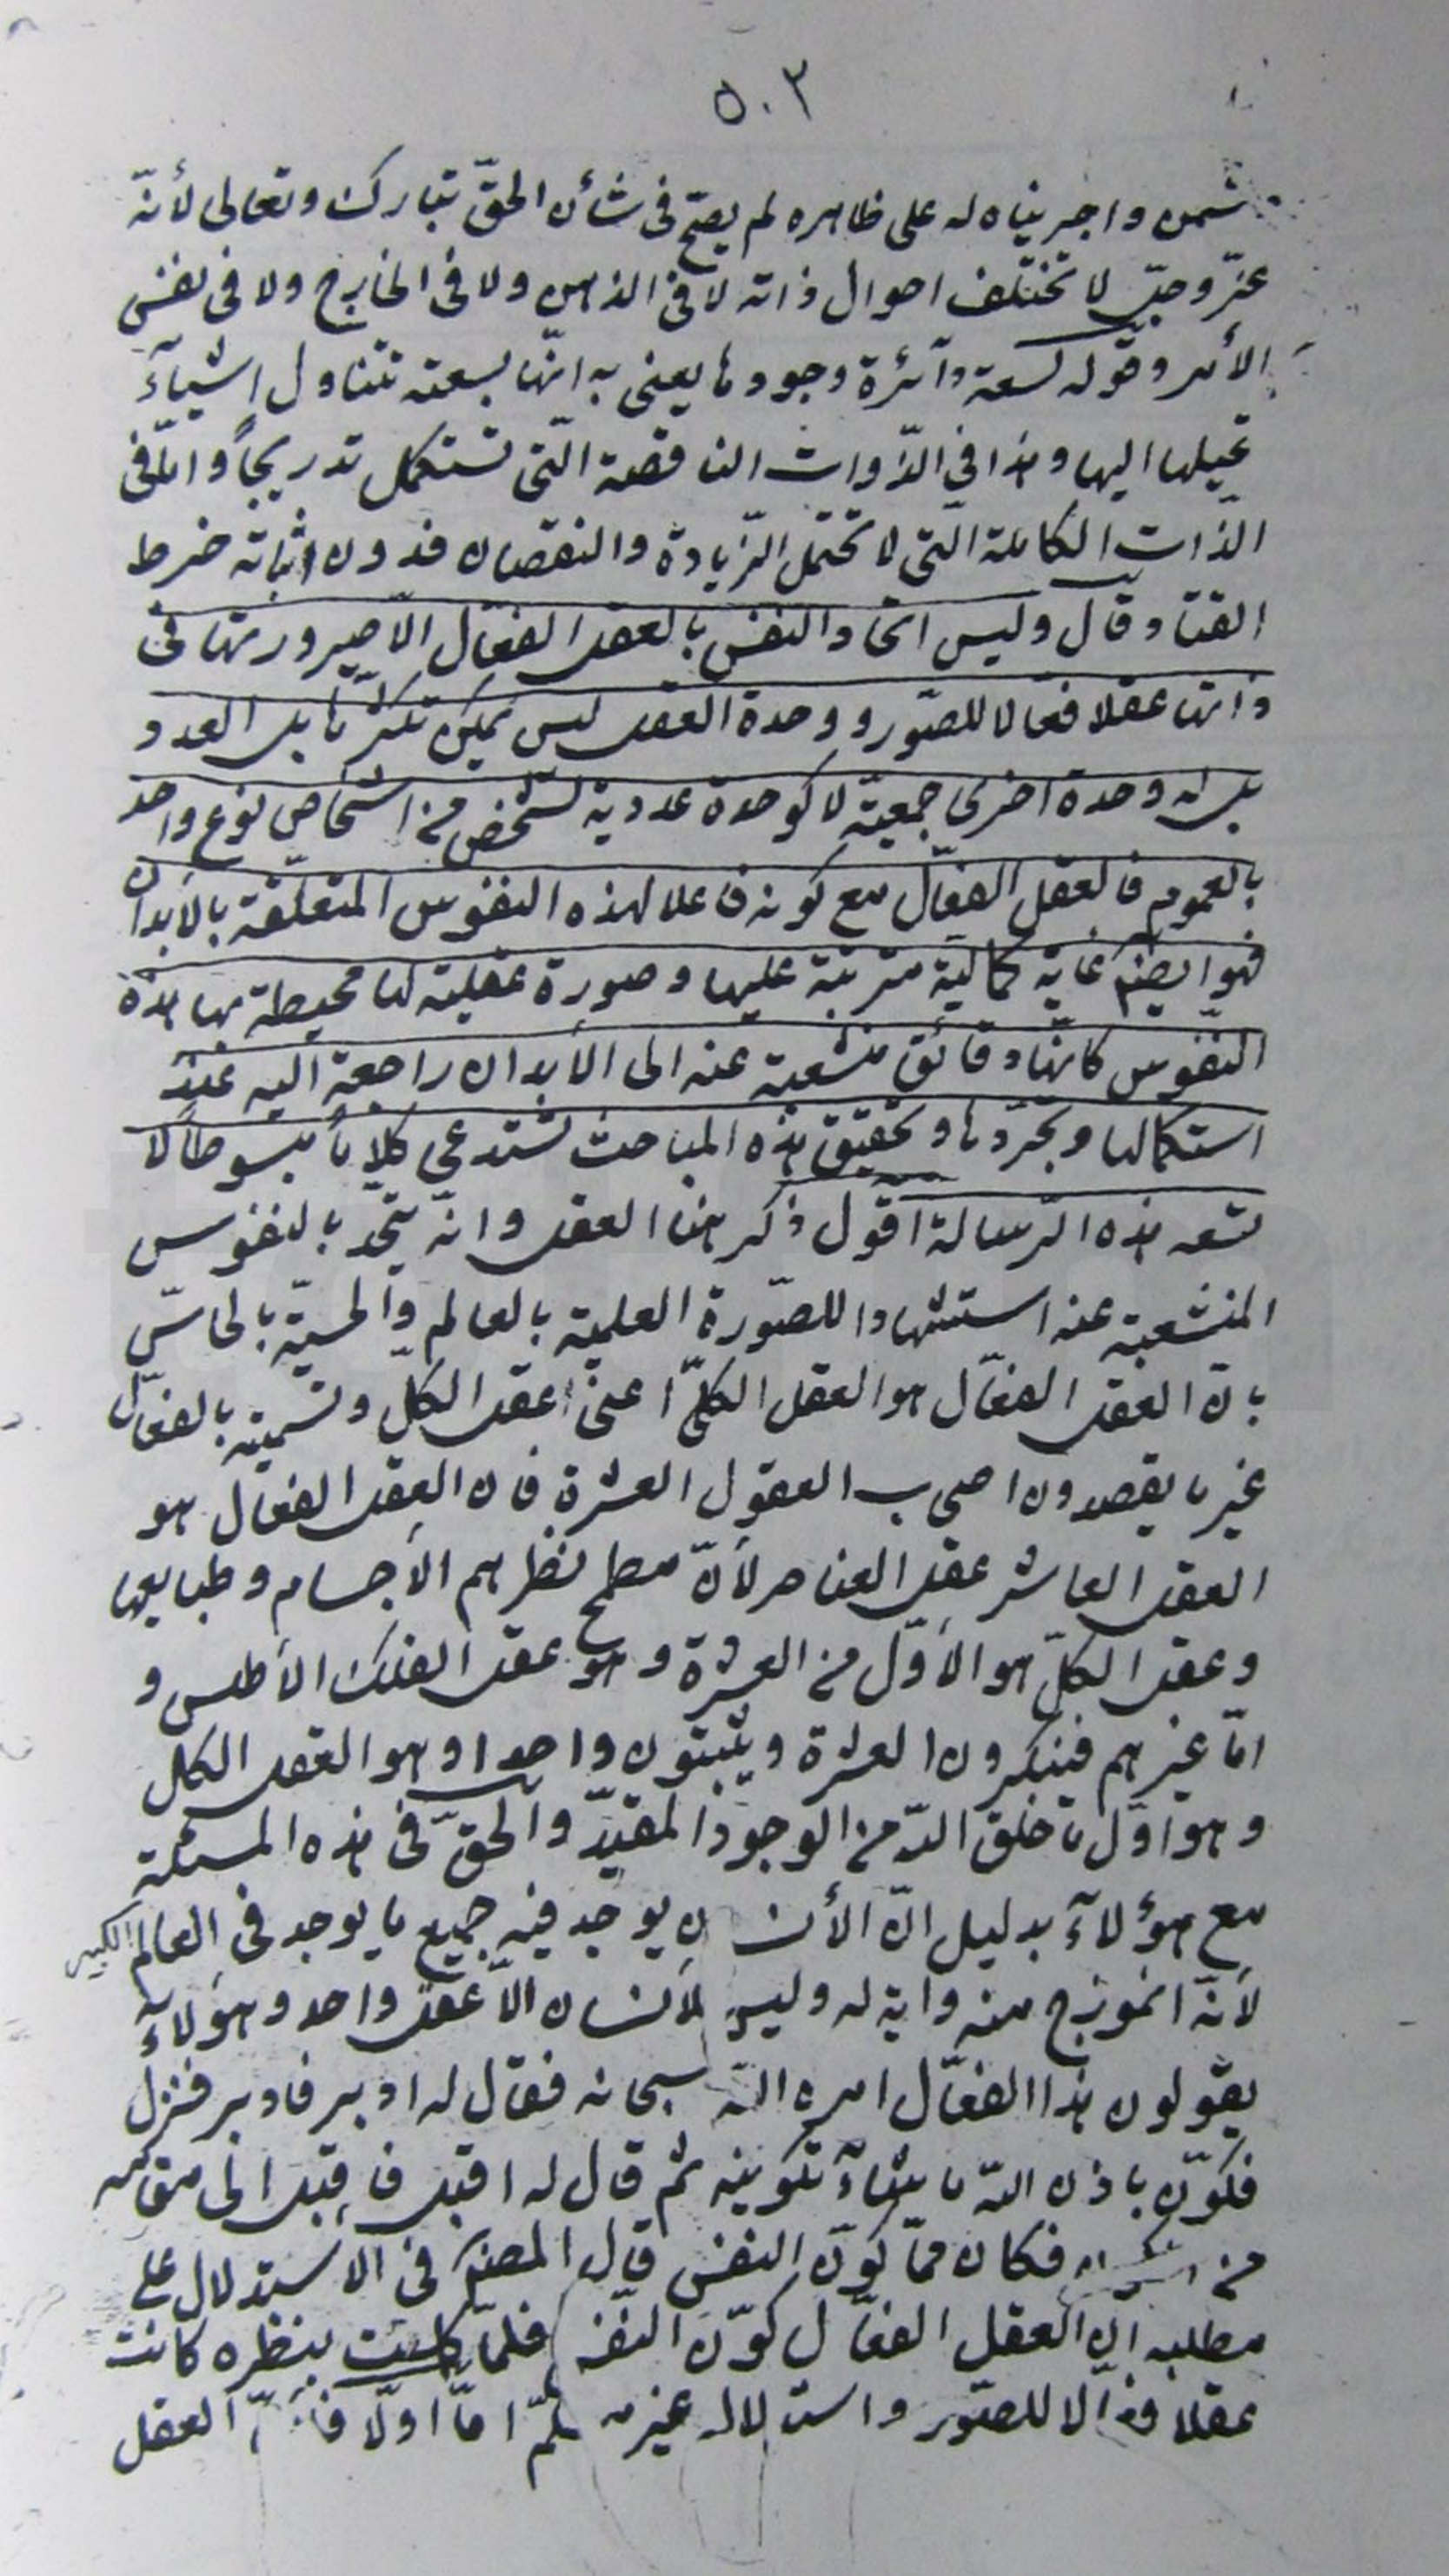 ٥٠٢
شمس واجريناه له على ظاهره لم يصحّ فى شأن الحقّ تبارك وتعالى لأنّه
عزّ وجلّ لا تختلف احوال ذاته لا فى الذهن ولا فى الخارج ولا فى نفس
الأمر وقوله لسعة دآئرة وجودها يعنى به انّها بسعته تتناول اشيآءً
تحيلها اليها وهذا فى الذّوات الناقصة الّتى تستكمل تدريجاً وامّا فى
الذّات الكاملة الّتى لا تحتمل الزّيادة والنقصان فدون اثباته خرط
القتاد قال وليس اتحاد النفس بالعقل الفعّال الّا صيرورتها فى
ذاتها عقلا فعّالا للصّور ووحدة العقل ليس يمكن تكثّرها بل العدد
بل له وحدة اخرى جمعيّة لا كوحدة عدديه لشخص من اشخاص نوع واحد
بالعموم فالعقل الفعّال مع كونه فاعلا لهذه النفوس المتعلّقة بالأبدان
فهو ايضم غاية كمالية مترتبة عليها وصورة عقلية لها محيطة بها هذه
النفوس كانّها دقائق منشعبة عنه الى الأبدان راجعة اليه عند
استكمالها وتجرّدها وتحقيق هذه المباحث تستدعى كلاما مبسوطا لا
تسعه هذه الرّسالة اقول ذكر هنا العقل وانّه يتّحد بالنفوس
المنشعبة عنه استشهادا للصّورة العلمية بالعالم والحسيّة بالحاسّ
بانّ العقل الفعّال هو العقل الكلّى اعنى عقل الكلّ وتسميته بالفعّال
غير ما يقصدون اصحاب العقول العشرة فان العقل الفعّال هو
العقل العاشر عقل العناصر لأنّ مطمح نظرهم الأجسام وطبايعها
وعقل الكلّ هو الأوّل من العشرة وهو عقل الفلك الأطلس و
امّا غيرهم فينكرون العشرة ويثبتون واحدا وهو العقل الكل
وهو اوّل ما خلق اللّه من الوجود المقيّد والحقّ فى هذه المسئلة
مع هؤلآء بدليل انّ الأنسان يوجد فيه جميع ما يوجد فى العالم الكبير
لأنّه انموذج منه واية له وليس للأنسان الّا عقل واحد وهؤلآء
يقولون هذا الفعّال امره اللّه سبحانه فقال له ادبر فادبر فنزل
فكوّن باذن اللّه ما يشآء تكوينه ثم قال له اقبل فاقبل الى مقامه
من فكان ممّا كوّن النفس قال المصنّم فى الأستدلال على
مطلبه انّ العقل الفعّال كوّن النّفس فلمّا كملت بنظره كانت
عقلا فعّالا للصّور واستدلاله غير تمّ امّا اوّلا العقل